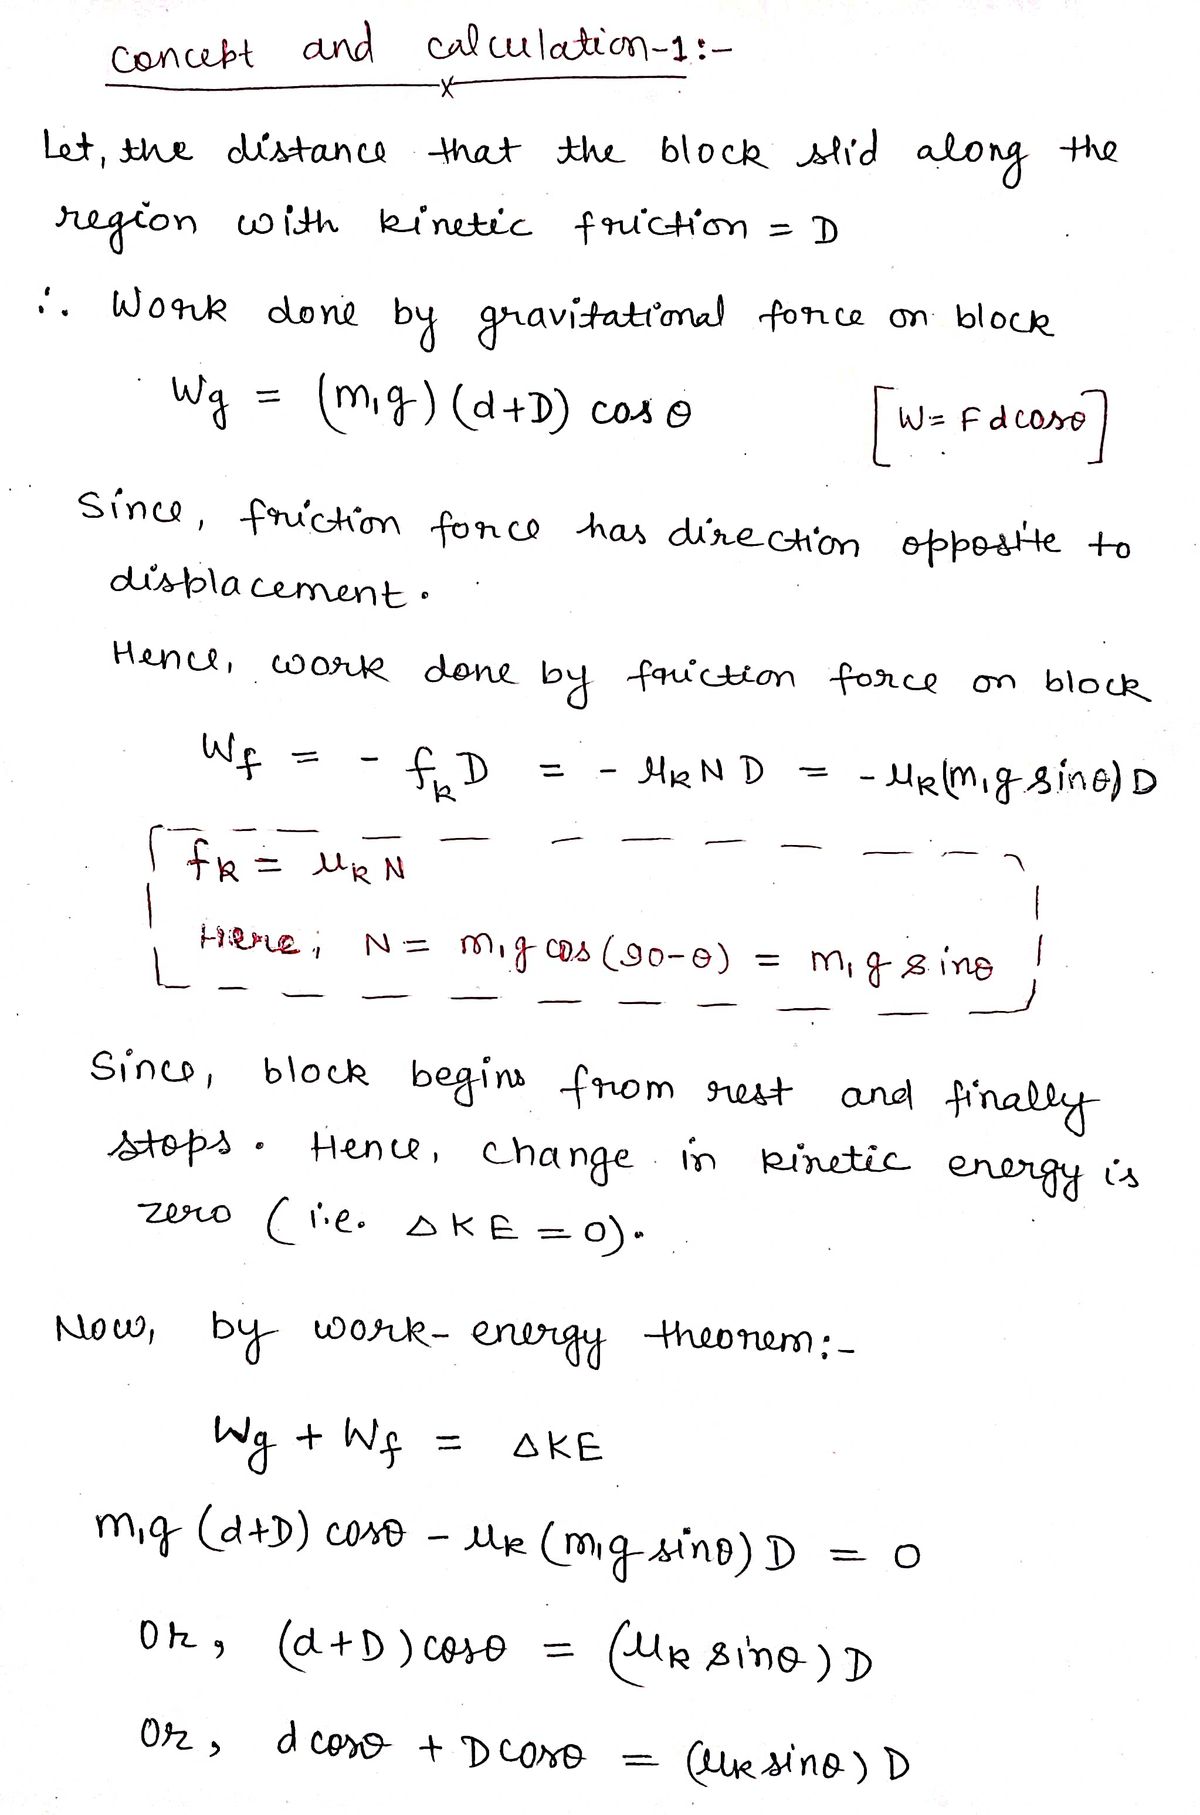 concept and calculation-1:-
Let, the distance that the block slid along the
region with kinetic friction = D
∴ Work done by gravitational force on block
Wg = (m₁g)(d+D) cosθ [W= Fdcosθ]
Since, friction force has direction opposite to
displacement.
Hence, work done by friction force on block
Wf = - fₖD = - μₖND = -μₖ(m₁g sinθ)D
fₖ = μₖN
Here, N = m₁g cos(90-θ) = m₁g sinθ
Since, block begins from rest and finally
stops. Hence, change in kinetic energy is
zero (i.e. ΔKE = 0).
Now, by work-energy theorem:-
Wg + Wf = ΔKE
m₁g(d+D)cosθ - μₖ(m₁g sinθ)D = 0
Or, (d+D)cosθ = (μₖ sinθ)D
Or, dcosθ + Dcosθ = (μₖ sinθ)D